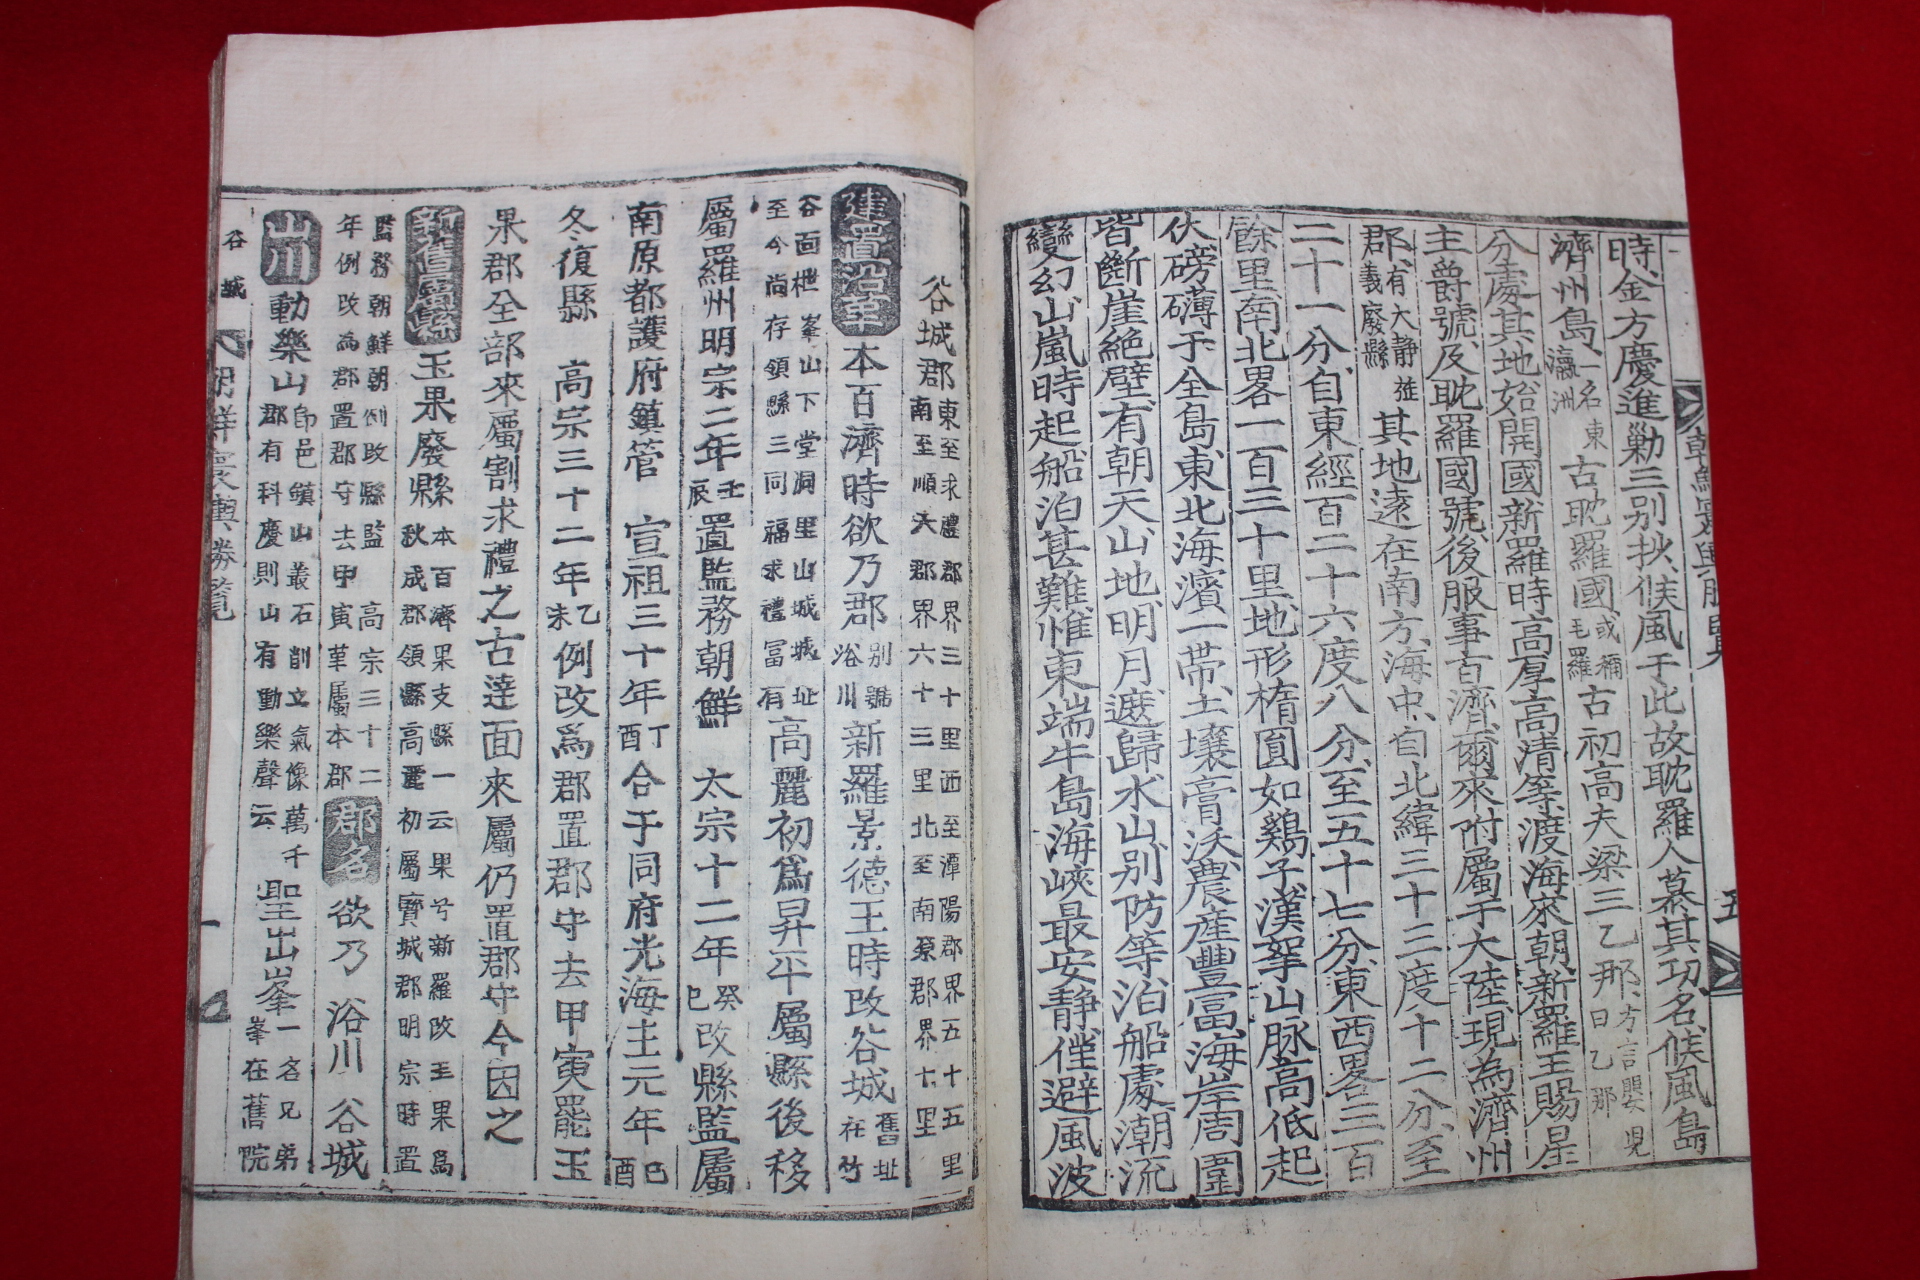 時、金方慶進勦三別抄、候風于此、故耽羅人慕其功、名候風島
濟州島、一名東瀛洲 古耽羅國、或稱毛羅 古初高夫梁三乙那、方言嬰兒曰乙那
分處其地、始開國、新羅時高厚高淸等、渡海來朝、新羅王賜星
主爵號、及耽羅國號、後服事百濟、爾來附屬于大陸、現為濟州
郡、有大靜旌義廢縣 其地遠在南方海中、自北緯三十三度十二分、至
二十一分、自東經百二十六度八分、至五十七分、東西畧三百
餘里、南北畧一百三十里、地形楕圓如鷄子、漢拏山脉高低起
伏、磅礴于全島、東北海濱一帶、土壤膏沃、農產豐富、海岸周圍
皆斷崖絶壁、有朝天山地明月遮歸水山別防等、泊船處潮流
變幻、山嵐時起、船泊甚難、惟東端牛島海峽最安靜、僅避風波
朝鮮寰輿勝覽 五
谷城郡 東至求禮郡界三十里西至潭陽郡界五十五里南至順天郡界六十三里北至南原郡界十里
建置沿革 本百濟時欲乃郡 別號浴川 新羅景德王時改谷城 舊址在竹
谷面檍峯山下堂洞里山城城址至今尚存領縣三同福求禮冨有 高麗初爲昇平屬縣後移
屬羅州明宗二年 壬辰 置監務朝鮮 太宗十二年 癸巳 改縣監屬
南原都護府鎭管 宣祖三十年 丁酉 合于同府光海主元年 己酉
冬復縣 高宗三十二年 乙未 例改爲郡置郡守去甲寅罷玉
果郡全部來屬割求禮之古達面來屬仍置郡守今因之
新舊屬縣 玉果廢縣 本百濟果支縣一云果兮新羅改玉果爲秋成郡領縣高麗初屬寶城郡明宗時置
監務朝鮮朝例改縣監 高宗三十二年例改為郡置郡守去甲寅革屬本郡 郡名 欲乃 浴川 谷城
山川 動樂山 郡有科慶則山有動樂聲云 聖出峯 一名兄弟峯在舊院
谷城
朝鮮寰輿勝覽
一